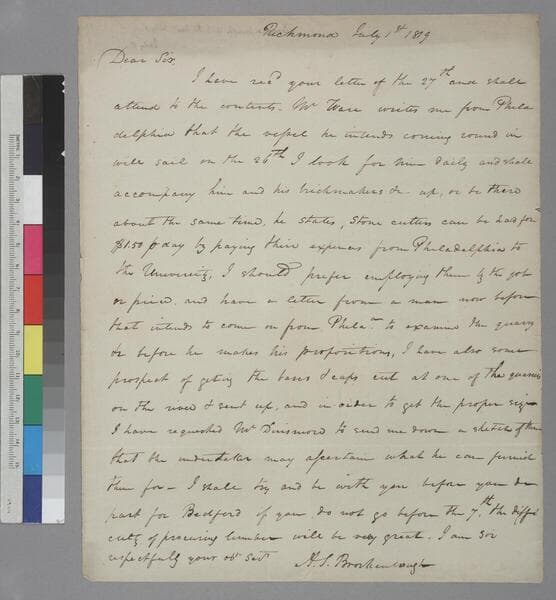 Richmond July 1st 1819
Dear Sir,
I have recd your letter of the 27th and shall
attend to the contents. Mr Ware writes me from Phila
delphia that the vessel he intends coming round in
will sail on the 26th I look for him daily and shall
accompany him and his brickmakers &c up, or be there
about the same time, he states, Stone cutters can be had for
$1.50 day by paying thire expences from Philadelphia to
the University, I should prefer employing them by the job
or piece. and have a letter from a man now before
that intends to come on from Phila. to examine the quarry
&c before he makes his propositions, I have also some
prospect of geting the bases & caps cut at one of the quarries
on the river & sent up, and in order to get the proper size
I have requested Mr Dinsmore to send me down a sketch of them
that the undertaker may ascertain what he can furnish
them for – I shall try and be with you before you de
part for Bedford if you do not go before the 7th, the diffi
culty of procuring lumber will be very great. I am Sir
respectfully your obt Sevt
A. S. Brockenbrough